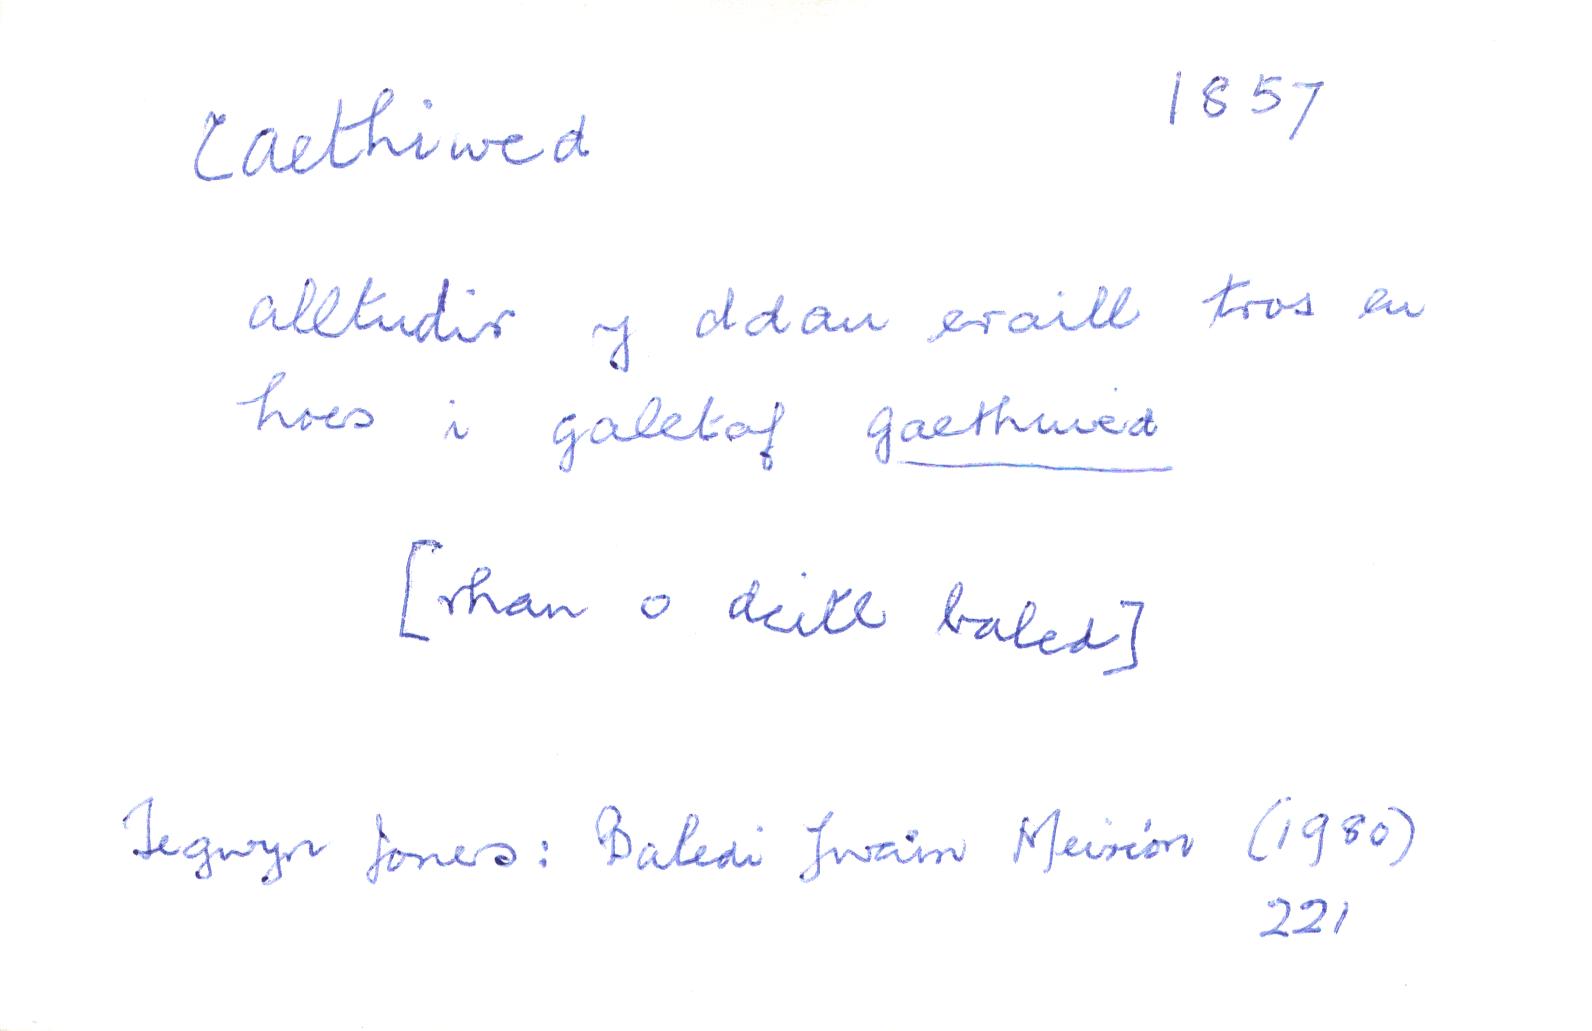 Caethiwed 1857
alltudir y ddau eraill tros eu
hoes i galetaf gaethiwed
[rhan o deitl baled]
Tegwyn Jones: Baledi Ywain Meirion (1980)
221